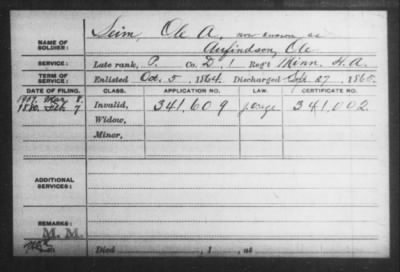 NAME OF SOLDIER: Seim, Ole A. now known as
Arfindson, Ole
SERVICE: Late rank, P. Co. D. 1 Reg't Minn. H. A.
TERM OF SERVICE: Enlisted Oct. 5, 1864. Discharged Sept. 27, 1865.
DATE OF FILING. CLASS. APPLICATION NO. LAW. CERTIFICATE NO.
1907. Mar. 8.
1880. Feb. 7. Invalid, 341.609 341.002
Widow,
Minor,
ADDITIONAL SERVICES:
REMARKS:
M. M.
Died , 1 , at